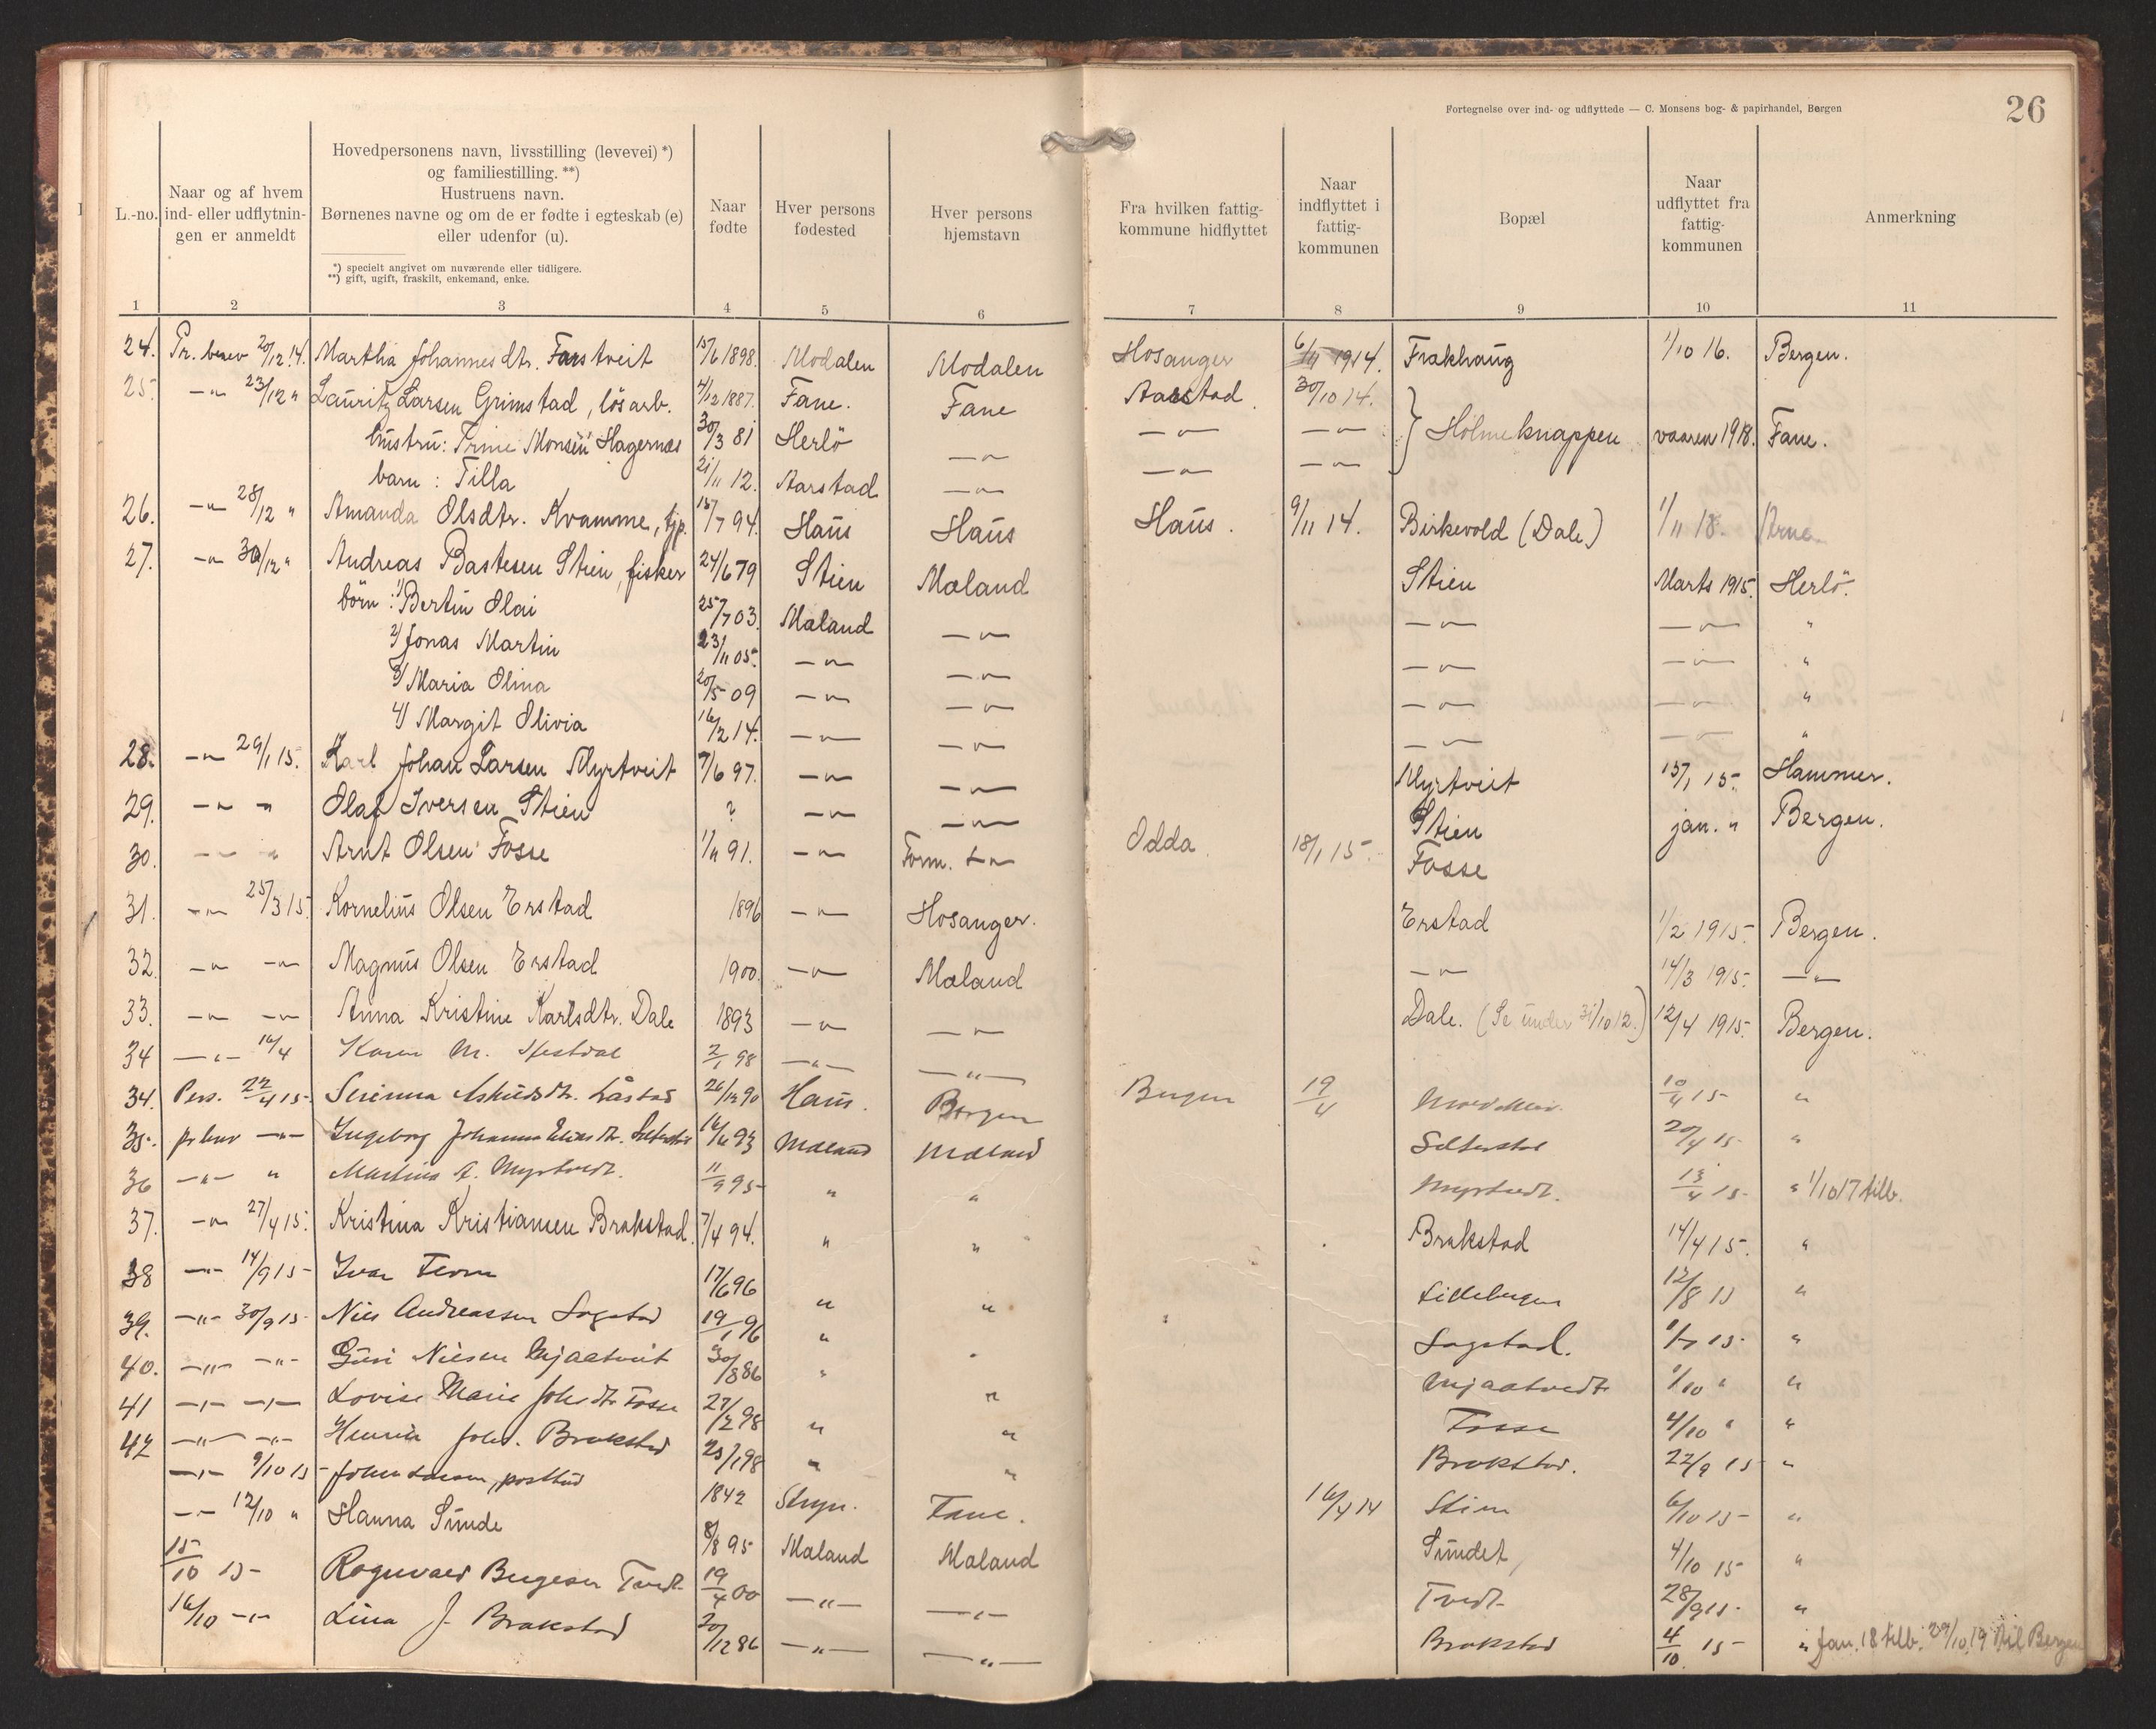 Fortegnelse over ind- og udflyttede — C. Monsens bog- & papirhandel, Bergen
26
L.-no.
Naar og af hvem ind- eller udflytningen er anmeldt
Hovedpersonens navn, livsstilling (levevei) *)
og familiestilling. **)
Hustruens navn.
Børnenes navne og om de er fødte i egteskab (e)
eller udenfor (u).
*) specielt angivet om nuværende eller tidligere.
**) gift, ugift, fraskilt, enkemand, enke.
Naar fødte
Hver persons fødested
Hver persons hjemstavn
Fra hvilken fattigkommune hidflyttet
Naar indflyttet i fattigkommunen
Bopæl
Naar udflyttet fra fattigkommunen
Anmerkning
1 2 3 4 5 6 7 8 9 10 11
24. Pr. brev 20/12 14. Martha Johannesdtr. Farstveit 15/6 1898. Modalen Modalen Hosanger 6/11 1914. Frakhaug 1/10 16. Bergen.
25. —"— 23/12 " Lauritz Larsen Grimstad, løsarb. 4/12 1887. Fane. Fane Aarstad. 30/10 14. Holmeknappen vaaren 1918. Fane.
hustru: Trine Monsen Hagernæs 30/3 81 Herlö —"— —"— —"—
barn: Tilla 21/11 12. Aarstad —"— —"— —"—
26. —"— 28/12 " Amanda Olsdtr. Kvamme, tjp. 15/7 94. Haus Haus Haus. 9/11 14. Birkevold (Dale) 1/11 18. Arna
27. —"— 30/12 " Andreas Bastesen Stien, fisker 24/6 79 Stien Mæland Stien Marts 1915. Herlö.
börn: 1/ Bertin Olai 25/7 03. Mæland —"— —"— —"— "
2/ Jonas Martin 23/11 05. —"— —"— —"— —"— "
3/ Maria Olina 20/5 09 —"— —"— —"— —"— "
4/ Margit Olivia 16/2 14. —"— —"— —"— —"— "
28. —"— 29/1 15. Karl Johan Larsen Myrtveit 7/6 97. —"— —"— Myrtveit 15/1 15. Hammer.
29. —"— " Olaf Iversen Stien ? —"— —"— Stien jan. " Bergen.
30. —"— " Arnt Olsen Fosse 1/11 91. —"— Form. —"— Odda. 18/1 15. Fosse
31. —"— 25/3 15. Kornelius Olsen Erstad 1896 —"— Hosanger. Erstad 1/2 1915. Bergen.
32. —"— —"— Magnus Olsen Erstad 1900. —"— Mæland —"— 14/3 1915. —"—
33. —"— —"— Anna Kristine Karlsdtr. Dale 1893 —"— —"— Dale. (Se under 31/10 12.) 12/4 1915. Bergen.
34 —"— 16/4 Karen M. 2/1 98 —"— —"—
34. Pers. 22/4 15 26/12 90 Haus. Bergen Bergen 19/4 10/4 15 "
35. pr brev —"— Ingeborg 16/6 93 Mæland Mæland 20/4 15 "
36 —"— " Martins A. Myrtvedt. 11/9 95 " " Myrtvedt. 13/4 15 " 1/10 17 tilb.
37. —"— 27/4 15. Kristina Kristiansen Brakstad. 7/4 94. " " Brakstad 14/4 15. "
38 —"— 14/9 15 Ivar 17/6 96 " " Lillebergen 12/8 15 "
39. —"— 30/9 15 Nils Andreassen Sagstad 19/1 96 " " Sagstad. 15 "
40. —"— —"— Guri Nilsen Mjaatveit 30/8 86 " " Mjaatvedt 1/10 " "
41 —"— —"— Lovise Marie Johsdtr Fosse 27/2 98 " " Fosse 4/10 " "
42 —"— —"— Johs. Brakstad 25/1 98 " " Brakstad. 22/9 15 "
—"— 9/10 15 Johan Larsen, postbud 1842 Stryn. Fane. 16/4 14 Stien 6/10 15 "
—"— 12/10 " Hanna Sunde 8/8 95 Mæland Mæland Sundet 4/10 15 "
15/10 15 Rognvald Birgesen Tvedt 19/4 00 —"— —"— Tvedt 28/9 15. "
16/10 —"— Lina J. Brakstad 20/12 86 —"— —"— Brakstad 4/10 15 " Jan. 18 tilb. 29/10 19 til Bergen